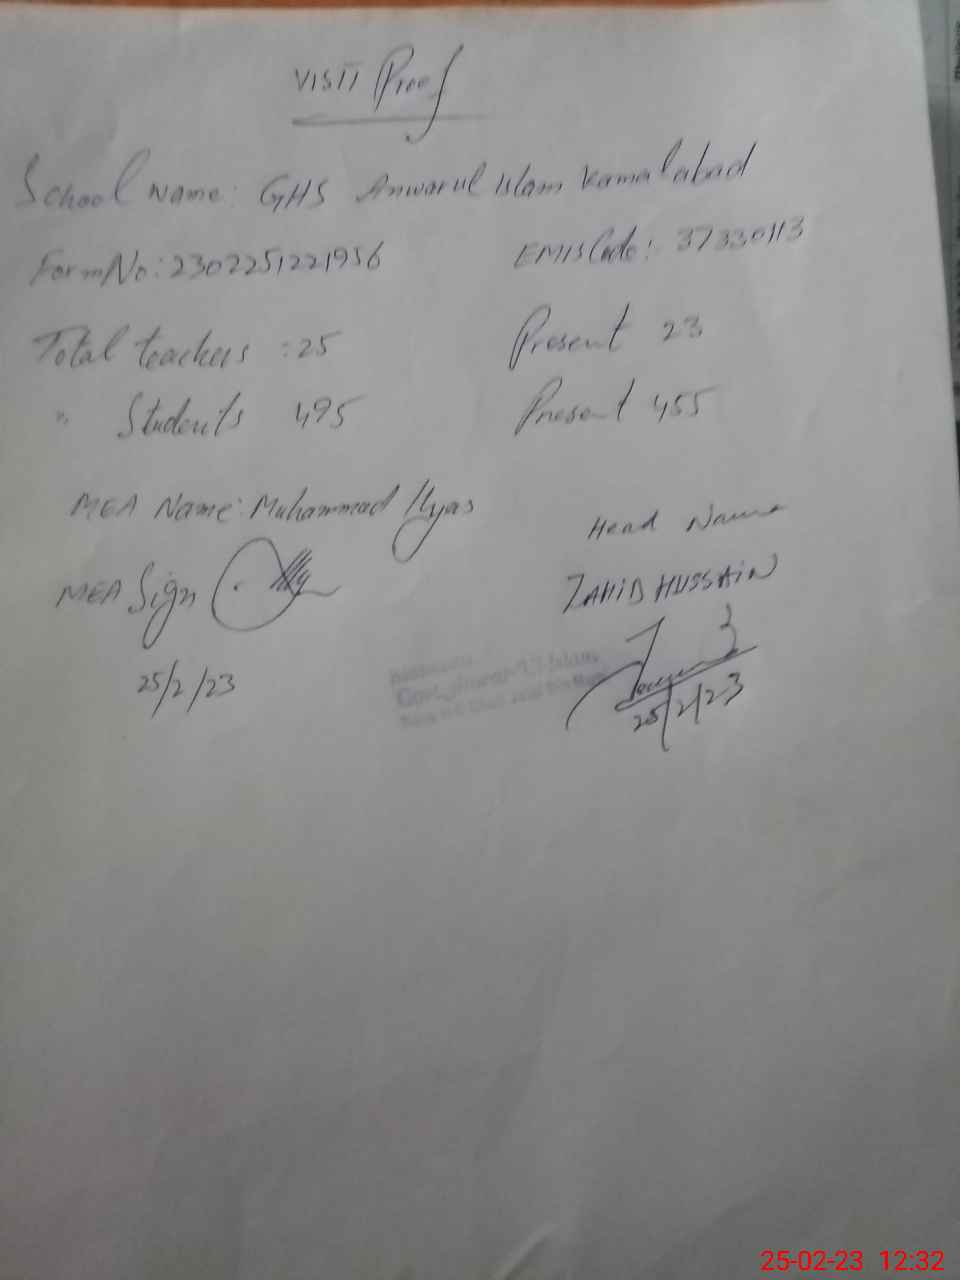 VISIT Proof
School Name: GHS Anwarul Islam Kamalabad
Form No: 2302251221956 EMIS Code: 37330113
Total teachers :25 Present 23
" Students 495 Present 455
MEA Name: Muhammad Ilyas
Head Name
MEA Sign
ZAHID HUSSAIN
25/2/23
25/2/23
25-02-23 12:32